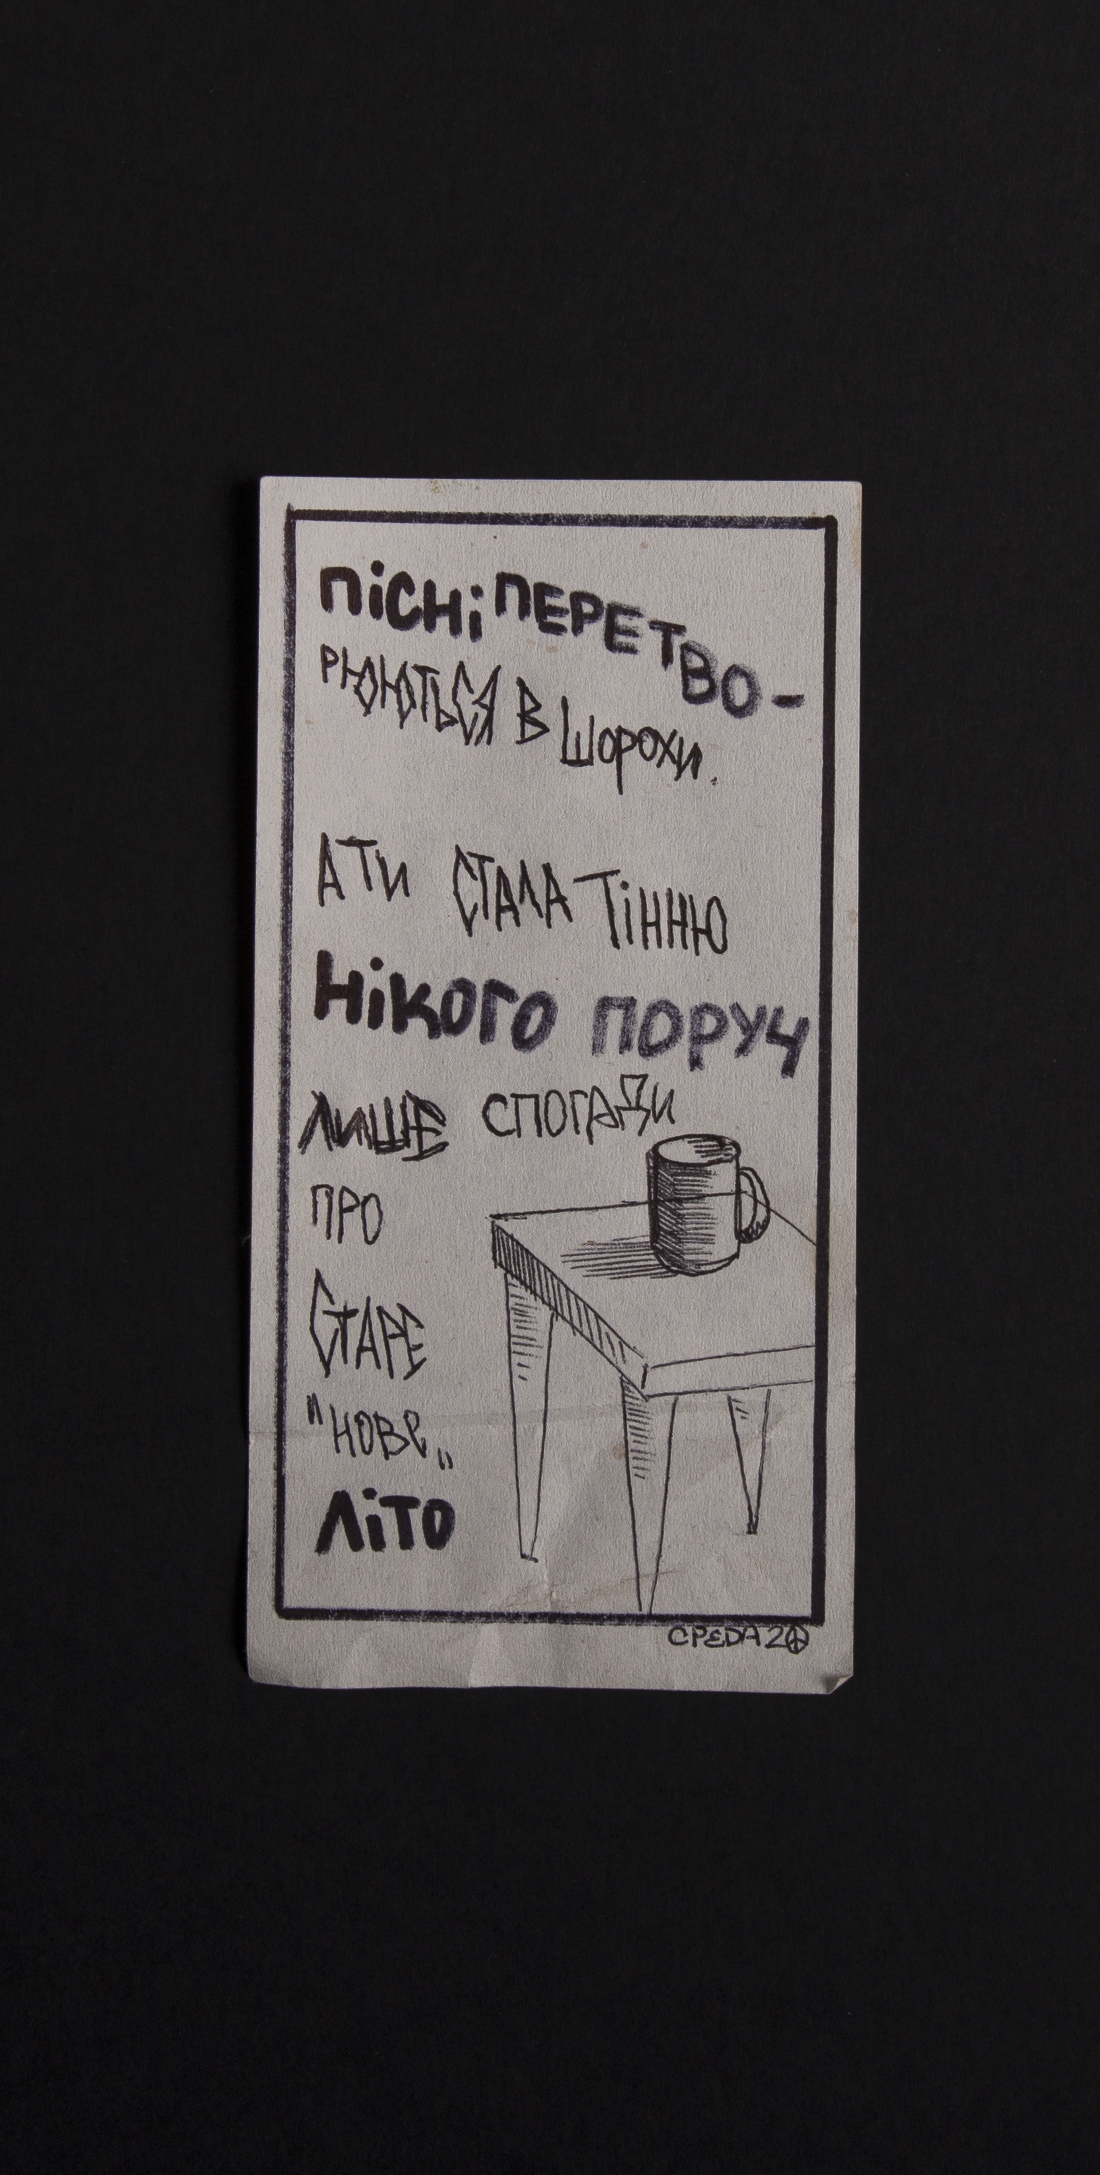 ПІСНІ ПЕРЕТВО-
РЮЮТЬСЯ В ШОРОХИ.
А ТИ СТАЛА ТІННЮ
НІКОГО ПОРУЧ
ЛИШЕ СПОГАДИ
ПРО
СТАРЕ
"НОВЕ„
ЛІТО
СРЕDА 20